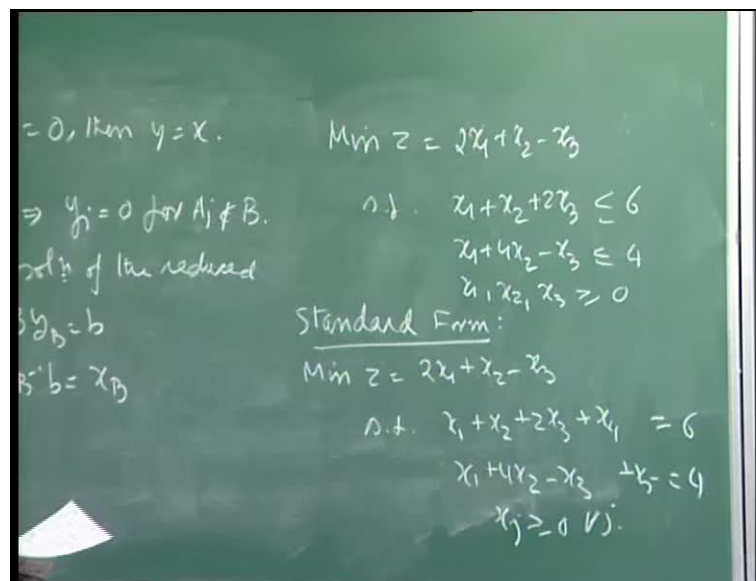 = 0, then y = x.
⇒ yj = 0 for Aj ∉ B.
soln of the reduced
yB = b
B⁻¹b = xB
Min z = 2x₁ + x₂ - x₃
s.t. x₁ + x₂ + 2x₃ ≤ 6
x₁ + 4x₂ - x₃ ≤ 4
x₁, x₂, x₃ ≥ 0
Standard Form:
Min z = 2x₁ + x₂ - x₃
s.t. x₁ + x₂ + 2x₃ + x₄ = 6
x₁ + 4x₂ - x₃ + x₅ = 4
xj ≥ 0 ∀j.